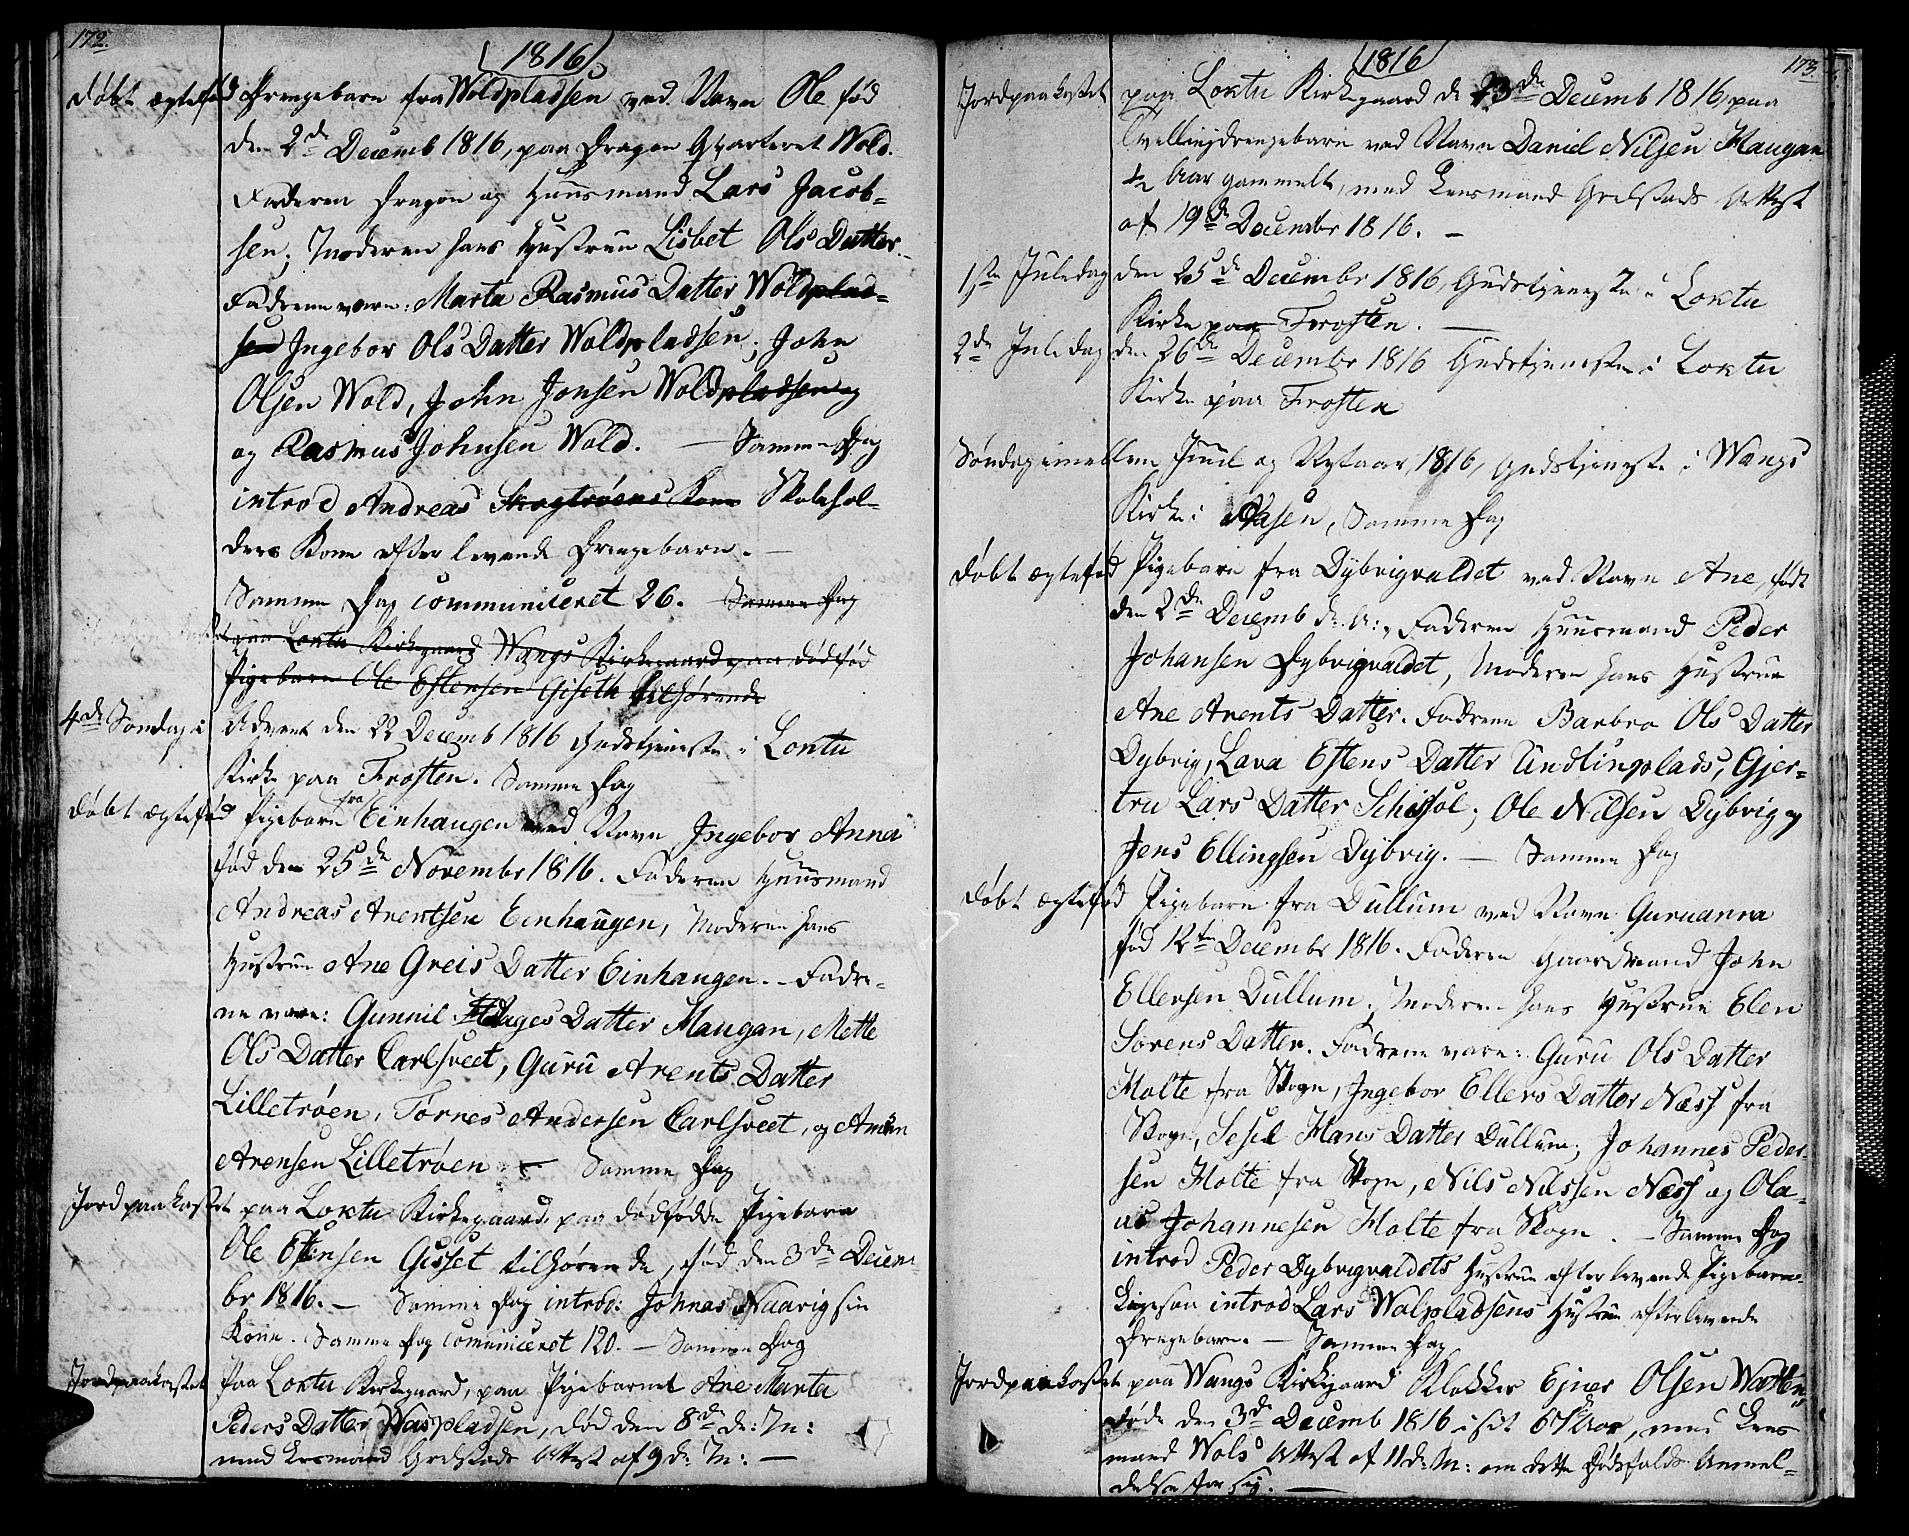 172.
(1816)
døbt ægtefød Drengebarn fra Woldpladsen ved Navn Ole fød
den 2de Decemb 1816, paa Dragon Qvarteret Wold.
Faderen Dragon og Huusmand Lars Jacob-
sen; Moderen hans Hustrue Lisbet Ols Datter.
Fadrene vare: Marta Rasmus Datter Woldplad-
sen Ingebor Ols Datter Woldpladsen; John
Olsen Wold, John Jonsen Woldpladsen og
og Rasmus Johnsen Wold. — Samme Dag
introd Andreas Skogtrøens Kone Skolehol-
ders Kone efter levende Drengebarn. —
Samme Dag communiceret 26. Samme Dag
paa Loktu Kirkegaard Wangs Kirkegaard paa dødfød
Pigebarn Ole Estensen Giseth tilhørende
4de Søndag i Advent den 22 Decemb 1816 Gudstjeneste i Loktu
Kirke paa Frosten. Samme Dag
døbt ægtefød Pigebarn fra Einhaugen ved Navn Ingebor Anna
fød den 25de Novembr 1816. Faderen Huusmand
Andreas Arentsen Einhaugen, Moderen hans
Hustrue Ane Greis Datter Einhaugen. - Fadre-
ne vare: Gunnil Hages Datter Haugan, Mette
Ols Datter Carlsveet, Guru Arents Datter
Lilletrøen, Tørnes Andersen Carlsveet, og
Arensen Lilletrøen — Samme Dag
Jordpaakastet paa Loktu Kirkegaard, paa dødfødde Pigebarn
Ole Estensen Gisset tilhørende, fød den 3de Decem
br 1816. — Samme Dag introd: Johnas Naavig sin
Kone. Samme Dag communiceret 120. — Samme Dag
Jordpaakastet Paa Loktu Kirkegaard, paa Pigebarnet Ane Marta
Peders Datter Waspladsen, død den 8de d: M:
med Lensmand Grelstads Attest af 9 d: M: —
173.
(1816)
Jordpaakastet paa Loktu Kirkegaard d 23de Decemb 1816, paa
Tvillingdrengebarn ved Navn Daniel Nilsen Haugan
1/2 Aar gammelt, med Lensmand Grelstads Attest
af 19de Decembr 1816. —
1ste Juledag den 25de Decembr 1816, Gudstjeneste i Loktu
Kirke paa Frosten. —
2de Juledag den 26de Decembr 1816 Gudstjeneste i Loktu
Kirke paa Frosten
Søndag imellem Juul og Nytaar, 1816, Gudstjeneste i Wangs
Kirke i Aasen, Samme Dag
døbt ægtefød Pigebarn fra Dybvigvaldet ved Navn Ane, født
den 2de Decemb d. A:, Faderen Huusmand Peder
Johansen Dybvigvaldet, Moderen hans Hustrue
Ane Arents Datter. Fadrene Barbro Ols Datter
Dybvig, Lava Estens Datter Undlinplads, Gjer-
tru Lars Datter Schisjol; Ole Nilsen Dybvig og
Jens Ellingsen Dybvig. — Samme Dag
døbt ægtefød Pigebarn fra Dullum ved Navn Guruanna
fød 12te Decembr 1816. Faderen Gaardmand John
Ellersen Dullum. Moderen hans Hustrue Elen
Sørens Datter. Fadrene vare: Guru Ols Datter
Holte fra Skogn, Ingebor Ellers Datter Næss fra
Skogn, Sesel Hans Datter Dullum; Johannes Peder-
sen Holte fra Skogn, Nils Nilssen Næss og Ola-
us Johannesen Holte fra Skogn. — Samme Dag
introd Peder Dybvigvaldets Hustrue efter levende Pigebarn-
Ligesaa introd Lars Wolpladsens Hustrue efter levende
Drengebarn. — Samme Dag
Jordpaakastet paa Wangs Kirkegaard Klokker Ejner Olsen Watten
døde den 3de Decemb 1816 i sit 67de Aar, med Lens
mand Wols Attest af 11 d: M: om dette Dødsfalds Anmel-
delse for sig. —